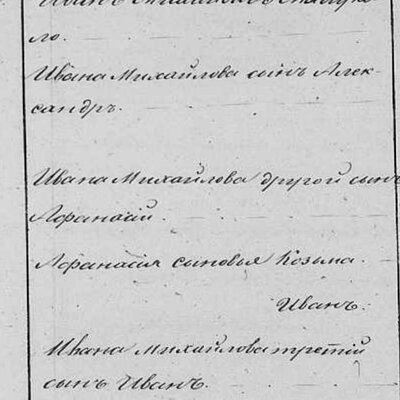 Иванъ
ло.
Ивана Михайлова сынъ Алек-
сандръ.
Ивана Михайлова другой сынъ
Афанасій.
Афанасія сыновья Козьма.
Иванъ.
Ивана Михайлова третій
сынъ Иванъ.